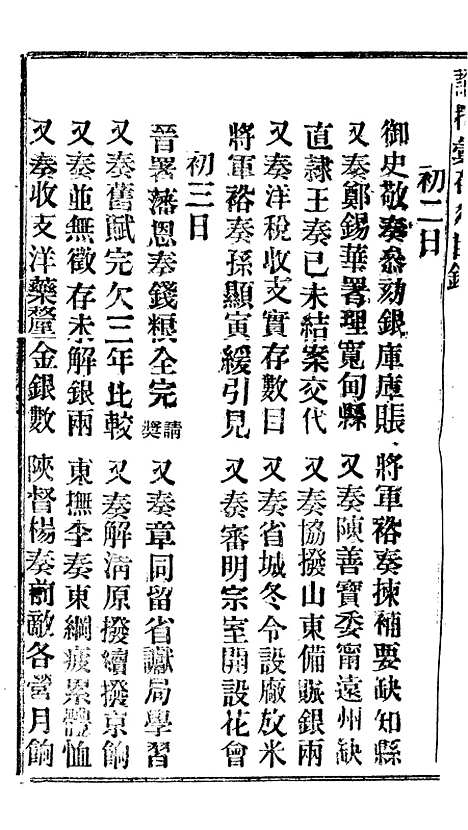 諭摺彙存卷目錄
初二日
御史敬奏叅劾銀庫庫賬 將軍裕奏揀補要缺知縣
又奏鄭錫華署理寬甸縣 又奏陳善寶委甯遠州缺
直隷王奏已未結案交代 又奏協撥山東備賑銀兩
又奏洋稅收支實存數目 又奏省城冬令設廠放米
將軍裕奏孫顯寅緩引見 又奏審明宗室開設花會
初三日
晉署藩恩奏錢糧全完請獎 又奏章同留省讞局學習
又奏舊賦完欠三年比較 又奏解淸原撥續撥京餉
又奏並無徵存未解銀兩 東撫李奏東綱疲累體恤
又奏收支洋藥釐金銀數 陝督楊奏前敵各營月餉